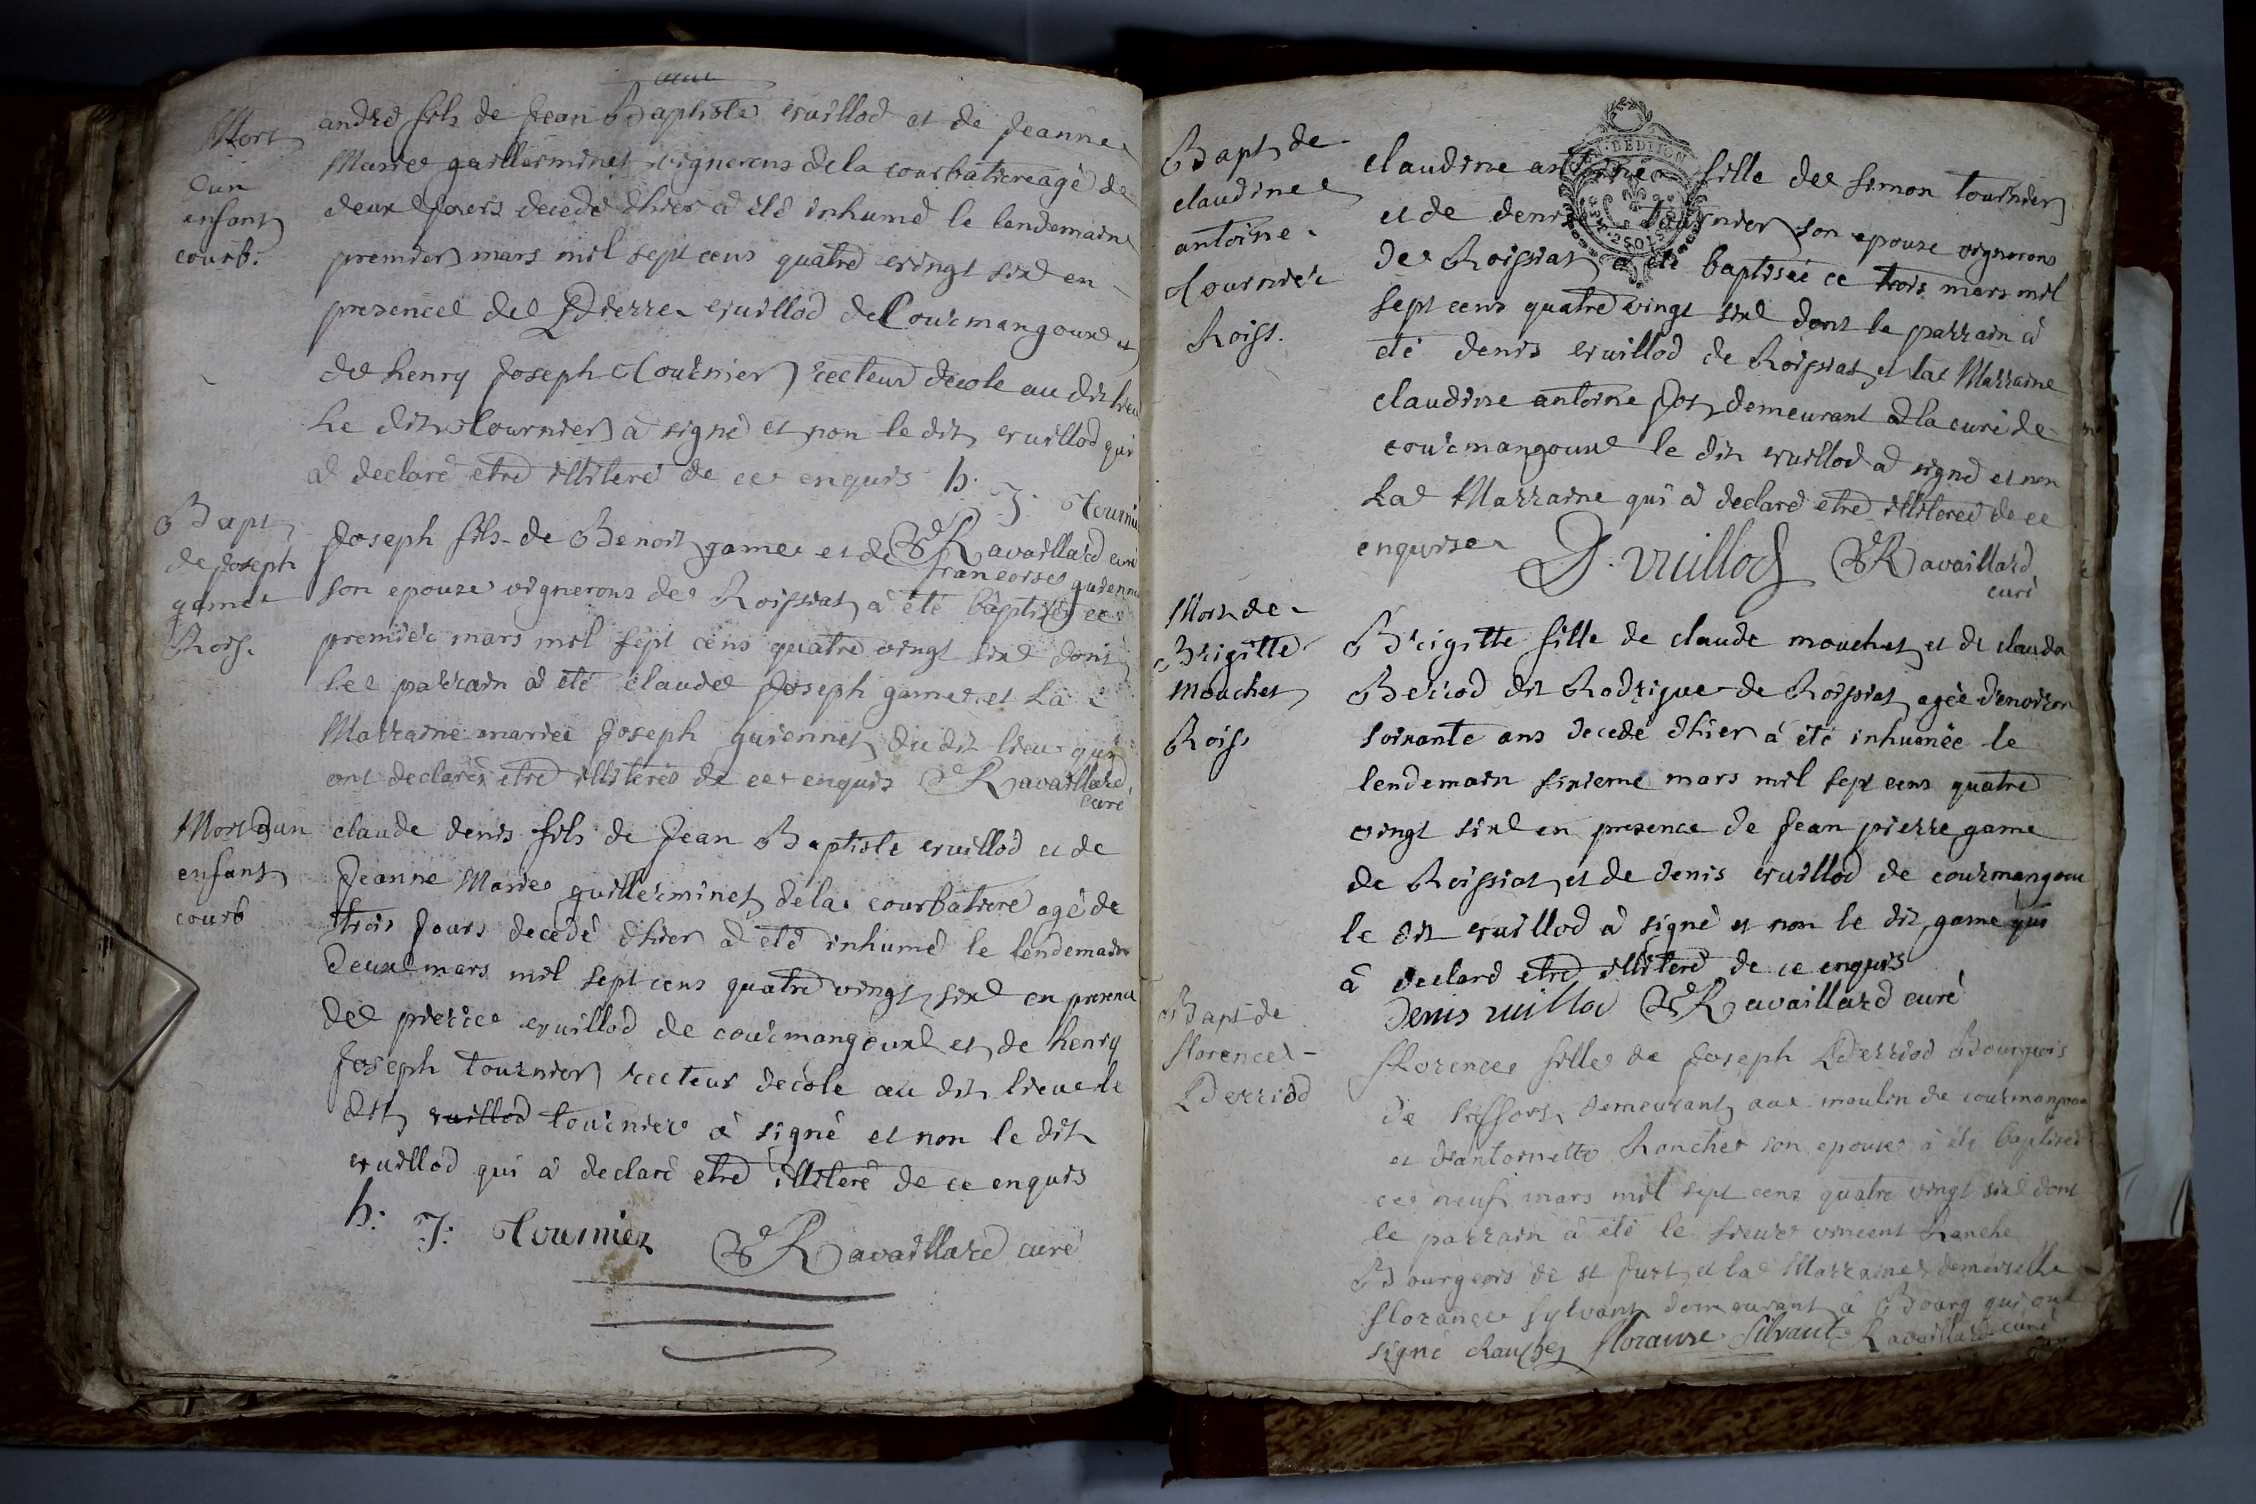 Mort
d'un
enfant
courb.
andré fils de Jean Baptiste vuillod et de Jeanne
Marie guillerminet vignerons de la courbatiere agé de
deux jours decedé d'hier a été inhumé le lendemain
premier mars mil sept cens quatre vingt six en
presence de Pierre vuillod de Courmangoux et
de henry Joseph Tournier recteur decole au dit lieu
Le dit Tournier à signé et non le dit vuillod qui
a declaré etre illiteré de ce enquis h:
J: Tournier
Ravaillard curé
Bapt
de joseph
game
Rois.
Joseph fils de Benoit game et de francoise guienne
son epouse vignerons de Roissiat a été baptisé ce
premier mars mil sept cens quatre vingt six dont
le parrain a été claude Joseph game et la
Marraine mariee Joseph guiennet du dit lieu qui
ont declarés etre illiterés de ce enquis Ravaillard
curé
Mort d'un
enfant
courb
claude denis fils de Jean Baptiste vuillod et de
Jeanne Marie guillerminet de la courbatiere agé de
trois jours decedé d'hier a été inhumé le lendemain
deux mars mil sept cens quatre vingt six en presence
de pierre vuillod de courmangoux et de henry
Joseph tournier recteur decole au dit lieu le
dit vuillod tournier à signé et non le dit
vuillod qui à declaré etre illiteré de ce enquis
h: J: Tournier Ravaillard curé
Bapt de
claudine
antoine
Tournier
Roiss.
claudine antoine fille de simon tournier
et de denise Tournier son epouse vignerons
de Roissiat a été baptisée ce trois mars mil
sept cens quatre vingt six dont le parrain a
été denis vuillod de Roissiat et la Marraine
claudine antoine demeurant a la cure de
courmangoux le dit vuillod a signé et non
La Marraine qui a declaré etre illiteree de ce
enquise D. vuillod Ravaillard
curé
Mort de
Brigitte
Mouchet
Roiss
Brigitte fille de claude mouchet et de clauda
Berrod dit Rodrigue de Roissiat agée d'environ
soixante ans decedé d'hier à été inhumée le
lendemain sixieme mars mil sept cens quatre
vingt six en presence de Jean pierre game
de Roissiat et de denis vuillod de courmangoux
le dit vuillod a signé et non le dit game qui
à declaré etre illiteré de ce enquis
Denis vuillod Ravaillard curé
Bapt de
florence
Perriod
florence fille de Joseph Perriod Bourgeois
de demeurant aux moulin de courmangoux
et d'antoinette Ranche son epouse à été baptisée
ce neuf mars mil sept cens quatre vingt six dont
le parrain à été le sieur vincent Ranche
Bourgeois de st Just et la Marraine demoiselle
florance sylvant demeurant à Bourg qui ont
signé florance Silvant Ravaillard curé